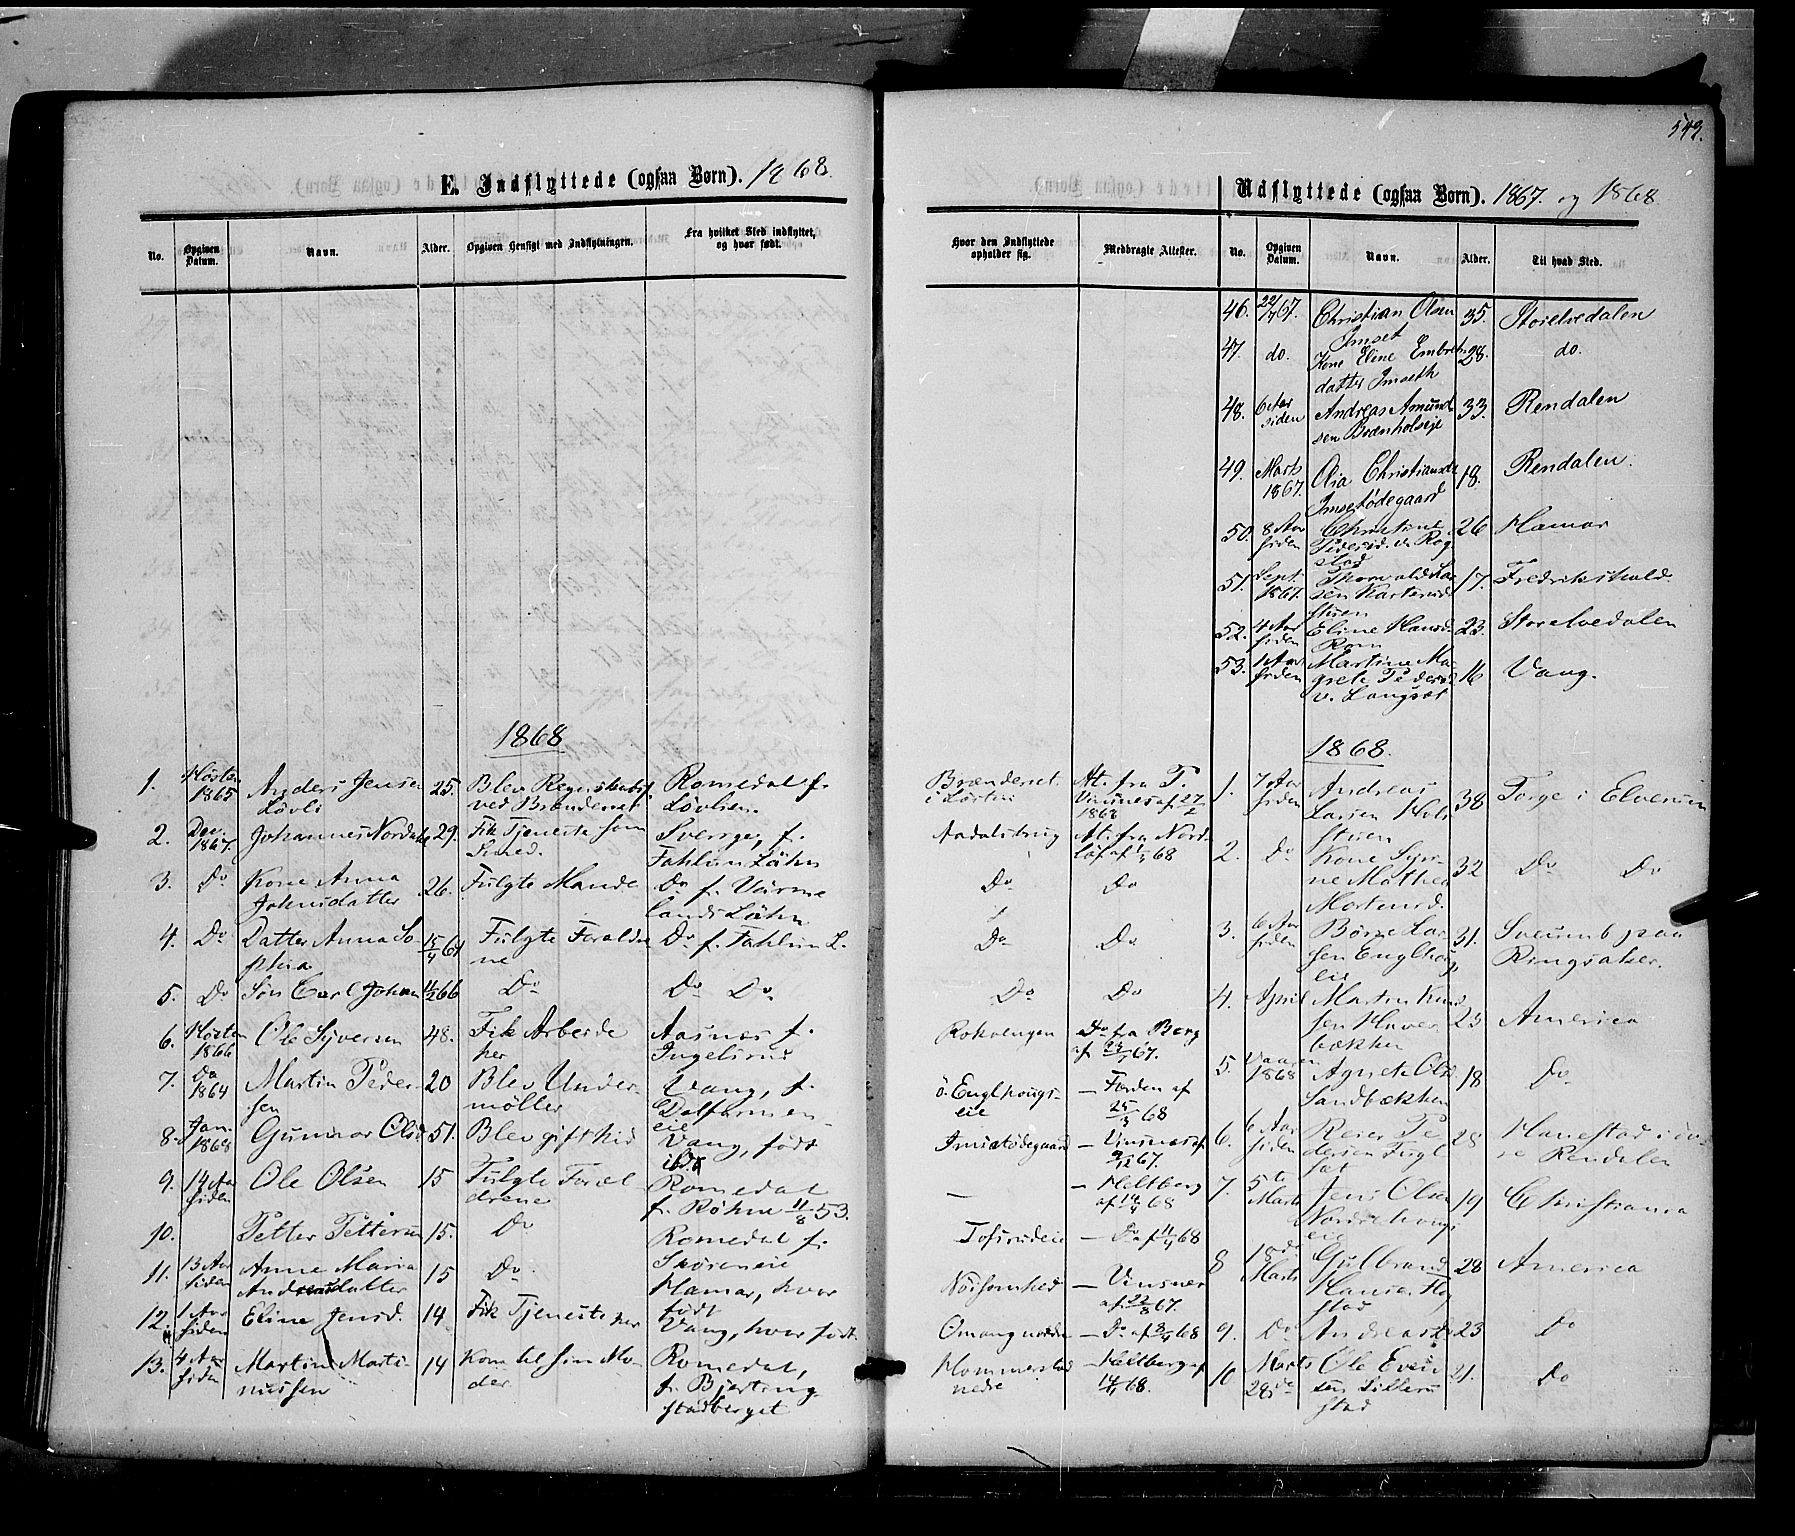 543.
E. Indflyttede (ogsaa Børn). 1868.
No. | Opgiven Datum. | Navn. | Alder. | Opgiven Hensigt med Indflytningen. | Fra hvilket Sted indflyttet, og hvor født.
1868
1. | Høsten 1865 | Anders Jensen Løvli | 25. | Blev Regnskabsf. ved Brænderiet | Romedal f. Løvlien.
2. | Dec. 1867. | Johannes Nordahl | 29. | Fik Tjeneste som Smed. | Sverige, f. Fahlun Lähn
3. | Do | Kone Anna Johnsdatter | 26. | Fulgte Mande | Do f. Värmelands Lähn
4. | Do | Datter Anna Sophia | 15/4 61 | Fulgte Forældrene | Do f. Fahlun L.
5. | Do | Søn Carl Johan | 66 | Do | Do Do
6. | Høsten 1866 | Ole Syversen | 48. | Fik Arbeide her | Aasnæs f. Ingelsrud
7. | Do 1864 | Martin Pedersen | 20 | Blev Undermøller | Vang, f. eie
8. | Jan. 1868 | Gunnar Olsd | 51. | Blev gift hid | Vang, født ibd.
9. | 14 Aar siden | Ole Olsen | 15 | Fulgte Forældrene | Romedal f. Røhne 11/8 53.
10. | Petter Pettersen | 15. | Do | Romedal f. Skøreneie
11. | 13 Aar siden | Anne Maria Andreasdatter | 15 | Do | Hamar, hvor født
12. | 1 Aar siden | Eline Jensd. | 14. | Fik Tjeneste her | Vang, hvor født.
13. | 4 Aar siden | Martin Martinussen | 14 | Kom til sin Moder | Romedal, f. Bjørtingstadberget
Hvor den Indflyttede opholder sig. | Medbragte Attester.
Brænderiet i Løten | At. fra P. Vinsnes af 27/2 1868
Aadalsbrug | At. fra Nord af 68
Do | Do
Do | Do
Do | Do
Rokoengen | Do fra Berg af 67.
ø. Englhougseie | — Farden af 25/3 68
Imsetødegaard | — Vinsnes af 9/12 67.
— | — Heltberg af 14/4 68
Tofsrudeie | — Do af 14/4 68
Nøisomhed | — Vinsnes af 22/8 67.
Omangnordre | — Do af 68
Hommerstad nedre | — Heltberg af 68.
Udflyttede (ogsaa Børn). 1867. og 1868.
No. | Opgiven Datum. | Navn. | Alder. | Til hvad Sted.
46. | 22/7 67. | Christian Olsen Imset | 35. | Storelvedalen
47. | do. | Kone Eline Embretsdatter Imseth | 28. | do.
48. | 6 Aar siden | Andreas Amundsen Brænholseje | 33. | Rendalen
49. | Marts 1867. | Olia Christiansd. Imsetødegaard | 18. | Rendalen.
50. | 8 Aar siden | Christine Pedersd. v. Rogstad | 26 | Hamar
51. | Sept. 1867. | Thorvald Larsen Karterudstuen | 17. | Fredrikshald.
52. | 4 Aar siden | Eline Hansd. Rom | 23. | Storelvedalen
53. | 1 Aar siden | Martine Magrete Pedersd. v. Langset | 16 | Vang.
1868.
1. | 7 Aar siden | Andreas Larsen Holsstuen | 38 | Torge i Elverum
2. | Do | Kone Synne Mathea Mortensd. | 32 | Do Do
3. | 6 Aar siden | Børre Larsen Englhougeie | 31. | Sveumb paa Ringsaker.
4. | April | Martin Knudsen Haverbækken | 23 | America
5. | Vaaren 1868 | Agnete Olsd Sandbækken | 18 | Do
6. | 6 Aar siden | Reier Pedersen Fuglset | 28 | Hanestad i øvre Rendalen
7. | 5te Marts | Jens Olsen Nordrehougseie | 19 | Christiania
8 | 18de Marts | Gulbrand Hansen Rogstad | 28 | America
9. | Do | Andreas Do | 23 | Do
10 | Marts 28de | Ole Evensen Lillerustad | 21. | Do